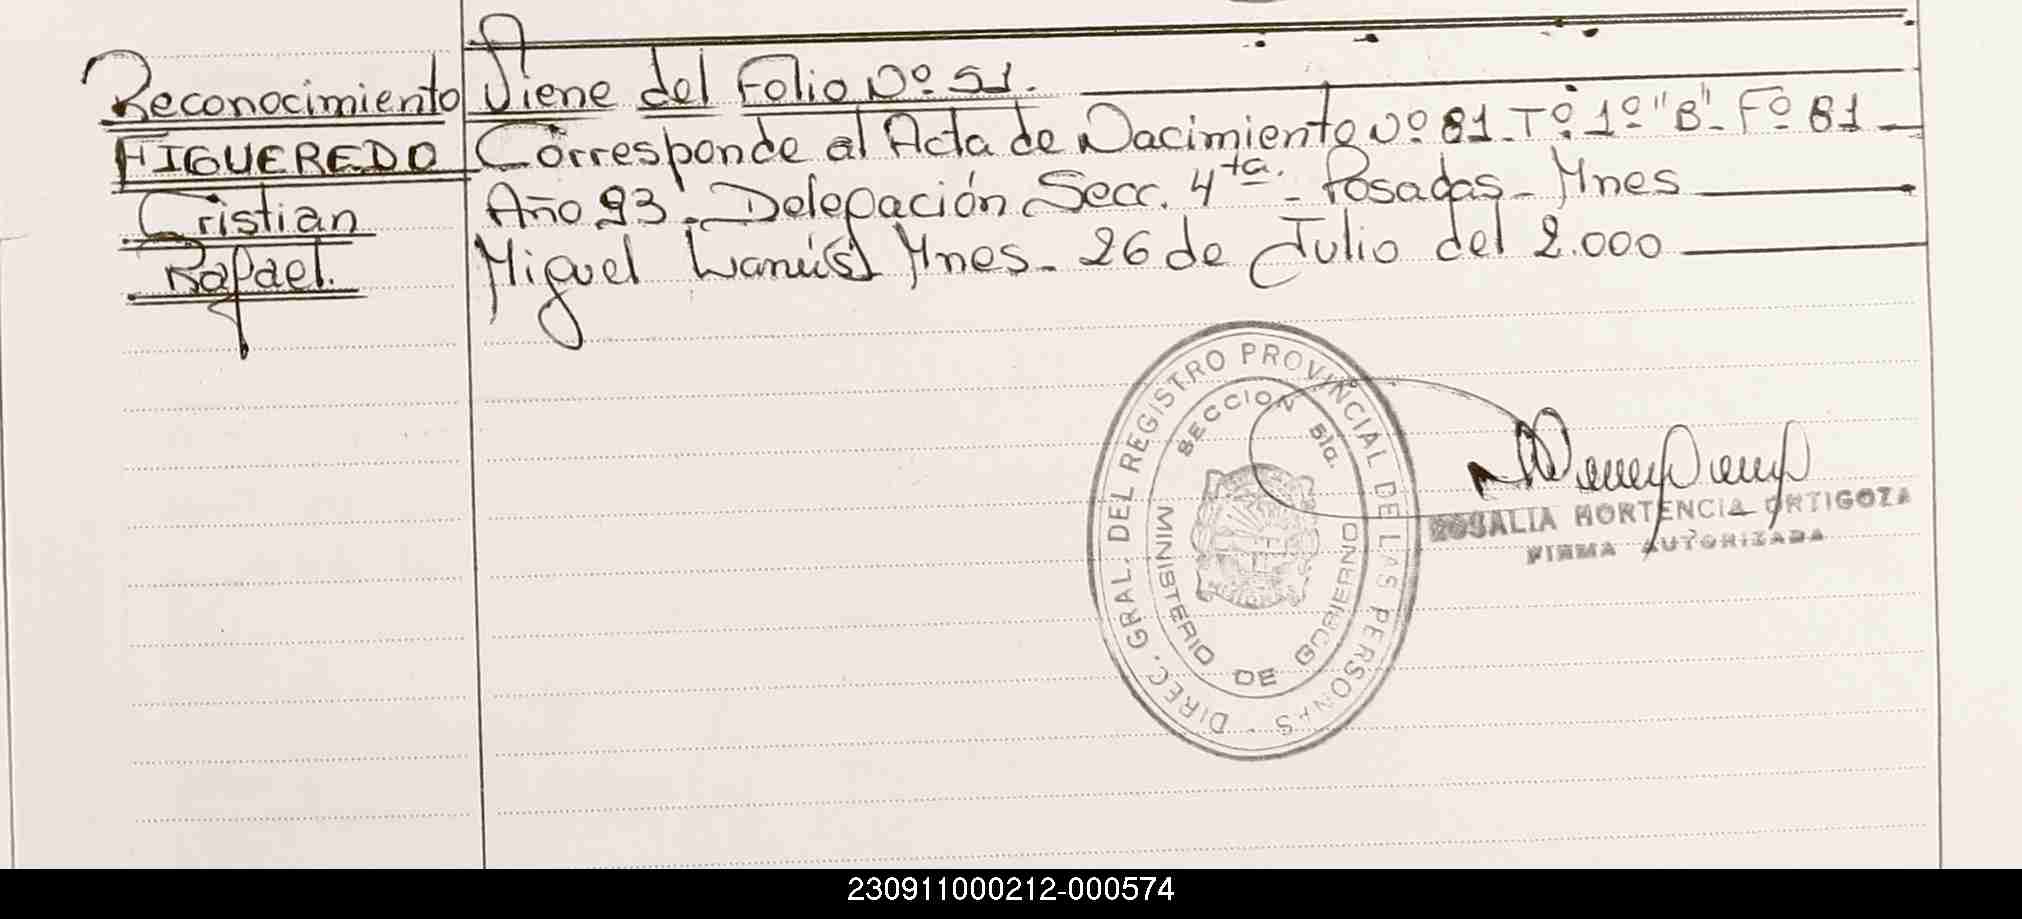 Reconocimiento
FIGUEREDO
Cristian
Rafael.
Viene del Folio Nº 51.
Corresponde al Acta de Nacimiento Nº 81 - Tº 1º "B" - Fº 81
Año 93. Delegación Secc. 4ta. - Posadas - Mnes
Miguel Lanús) Mnes - 26 de Julio del 2.000
DIREC. GRAL. DEL REGISTRO PROVINCIAL DE LAS PERSONAS -
SECCION 5ta.
MINISTERIO DE GOBIERNO
ROSALIA HORTENCIA ORTIGOZA
FIRMA AUTORIZADA
230911000212-000574